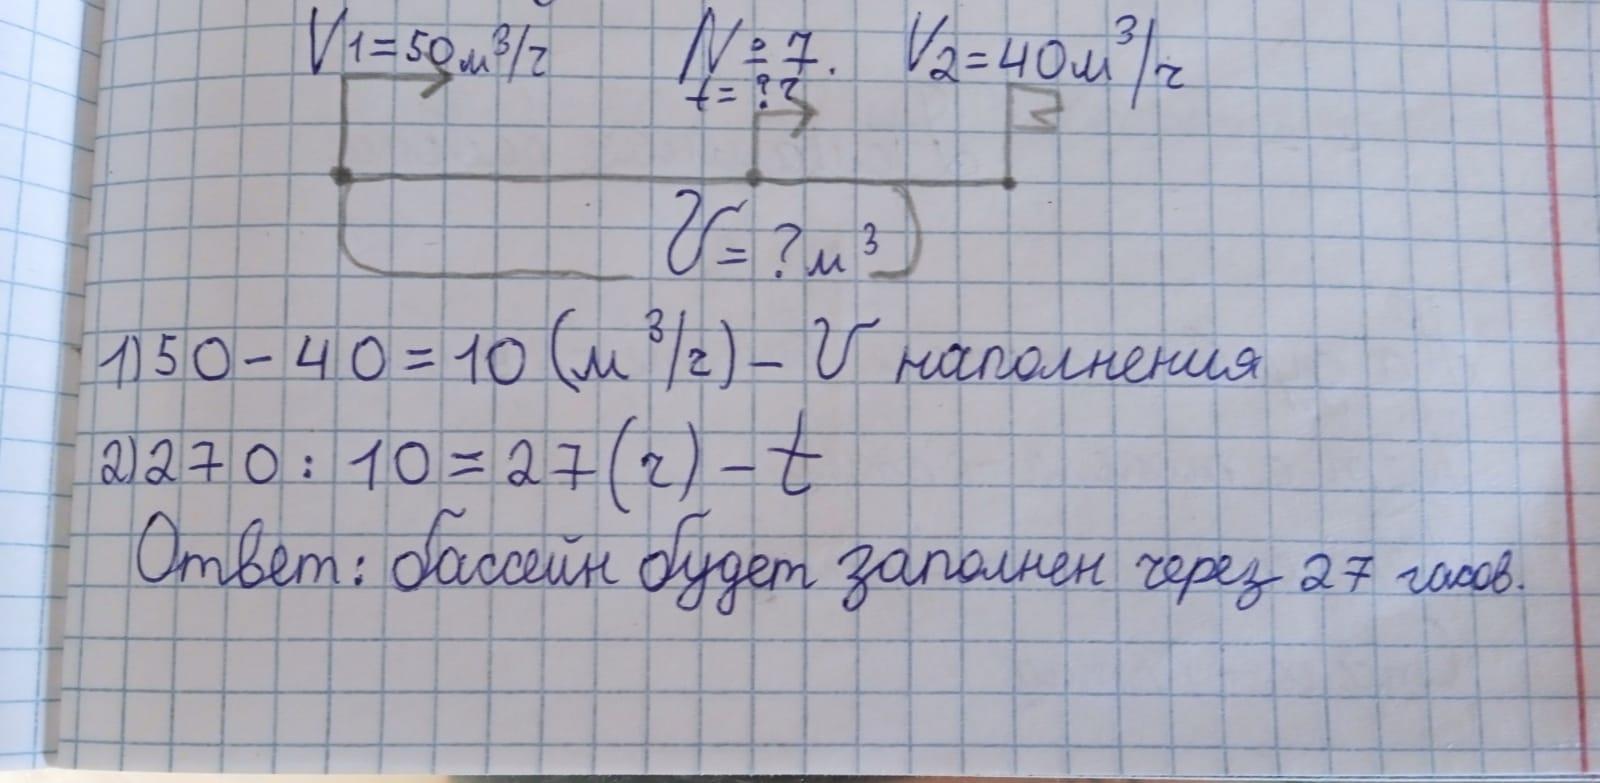 V1=50м³/ч № 7. V2=40м³/ч
t=??
V=?м³
1)50-40=10(м³/ч)-V наполнения
2)270:10=27(ч)-t
Ответ: бассейн будет заполнен через 27 часов.